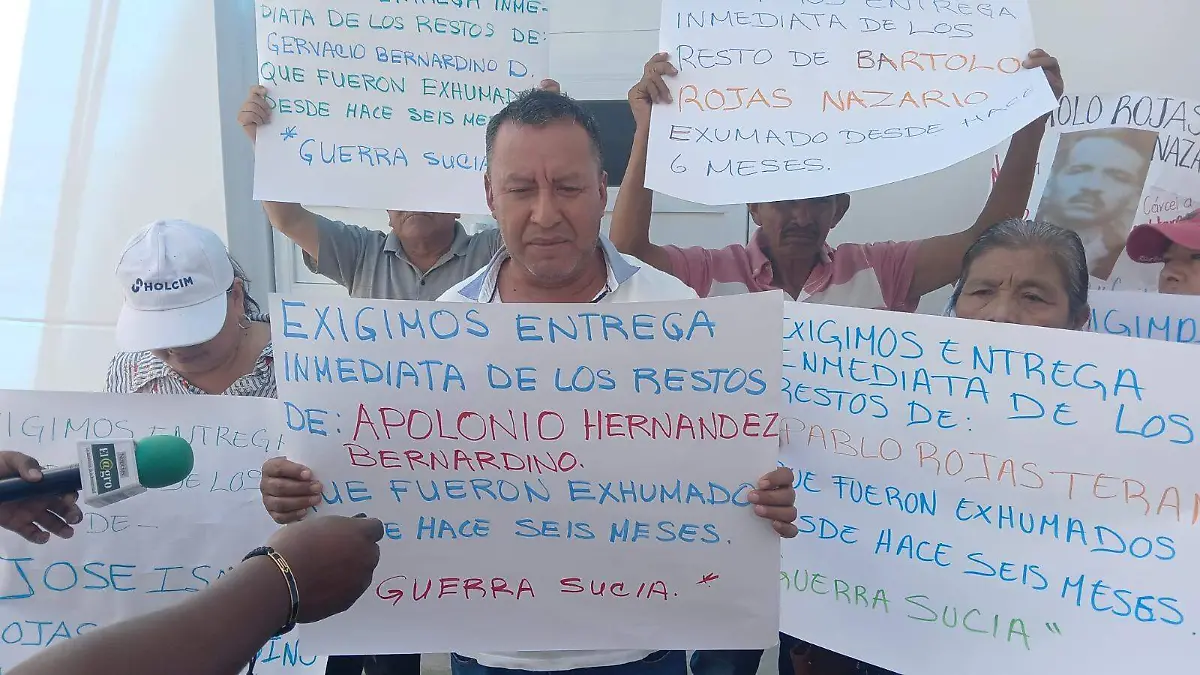 ENTREGA INME-
DIATA DE LOS RESTOS DE:
GERVACIO BERNARDINO D.
QUE FUERON EXHUMAD
DESDE HACE SEIS ME
*GUERRA SUCIA
ENTREGA
INMEDIATA DE LOS
RESTO DE BARTOLO
ROJAS NAZARIO
EXUMADO DESDE HACE
6 MESES.
OLO ROJAS
NAZA
Cárcel a
HOLCIM
EXIGIMOS ENTREGA
INMEDIATA DE LOS RESTOS
DE: APOLONIO HERNANDEZ
BERNARDINO.
QUE FUERON EXHUMADO
DE HACE SEIS MESES.
GUERRA SUCIA. *
EXIGIMOS ENTREGA
INMEDIATA DE LOS
RESTOS DE:
PABLO ROJAS TERA
QUE FUERON EXHUMADOS
SDE HACE SEIS MESES.
GUERRA SUCIA"
IGIMO
IGIMOS ENTREGA
DE LOS
DE-
JOSE IS
ROJAS
DINU
El @gro